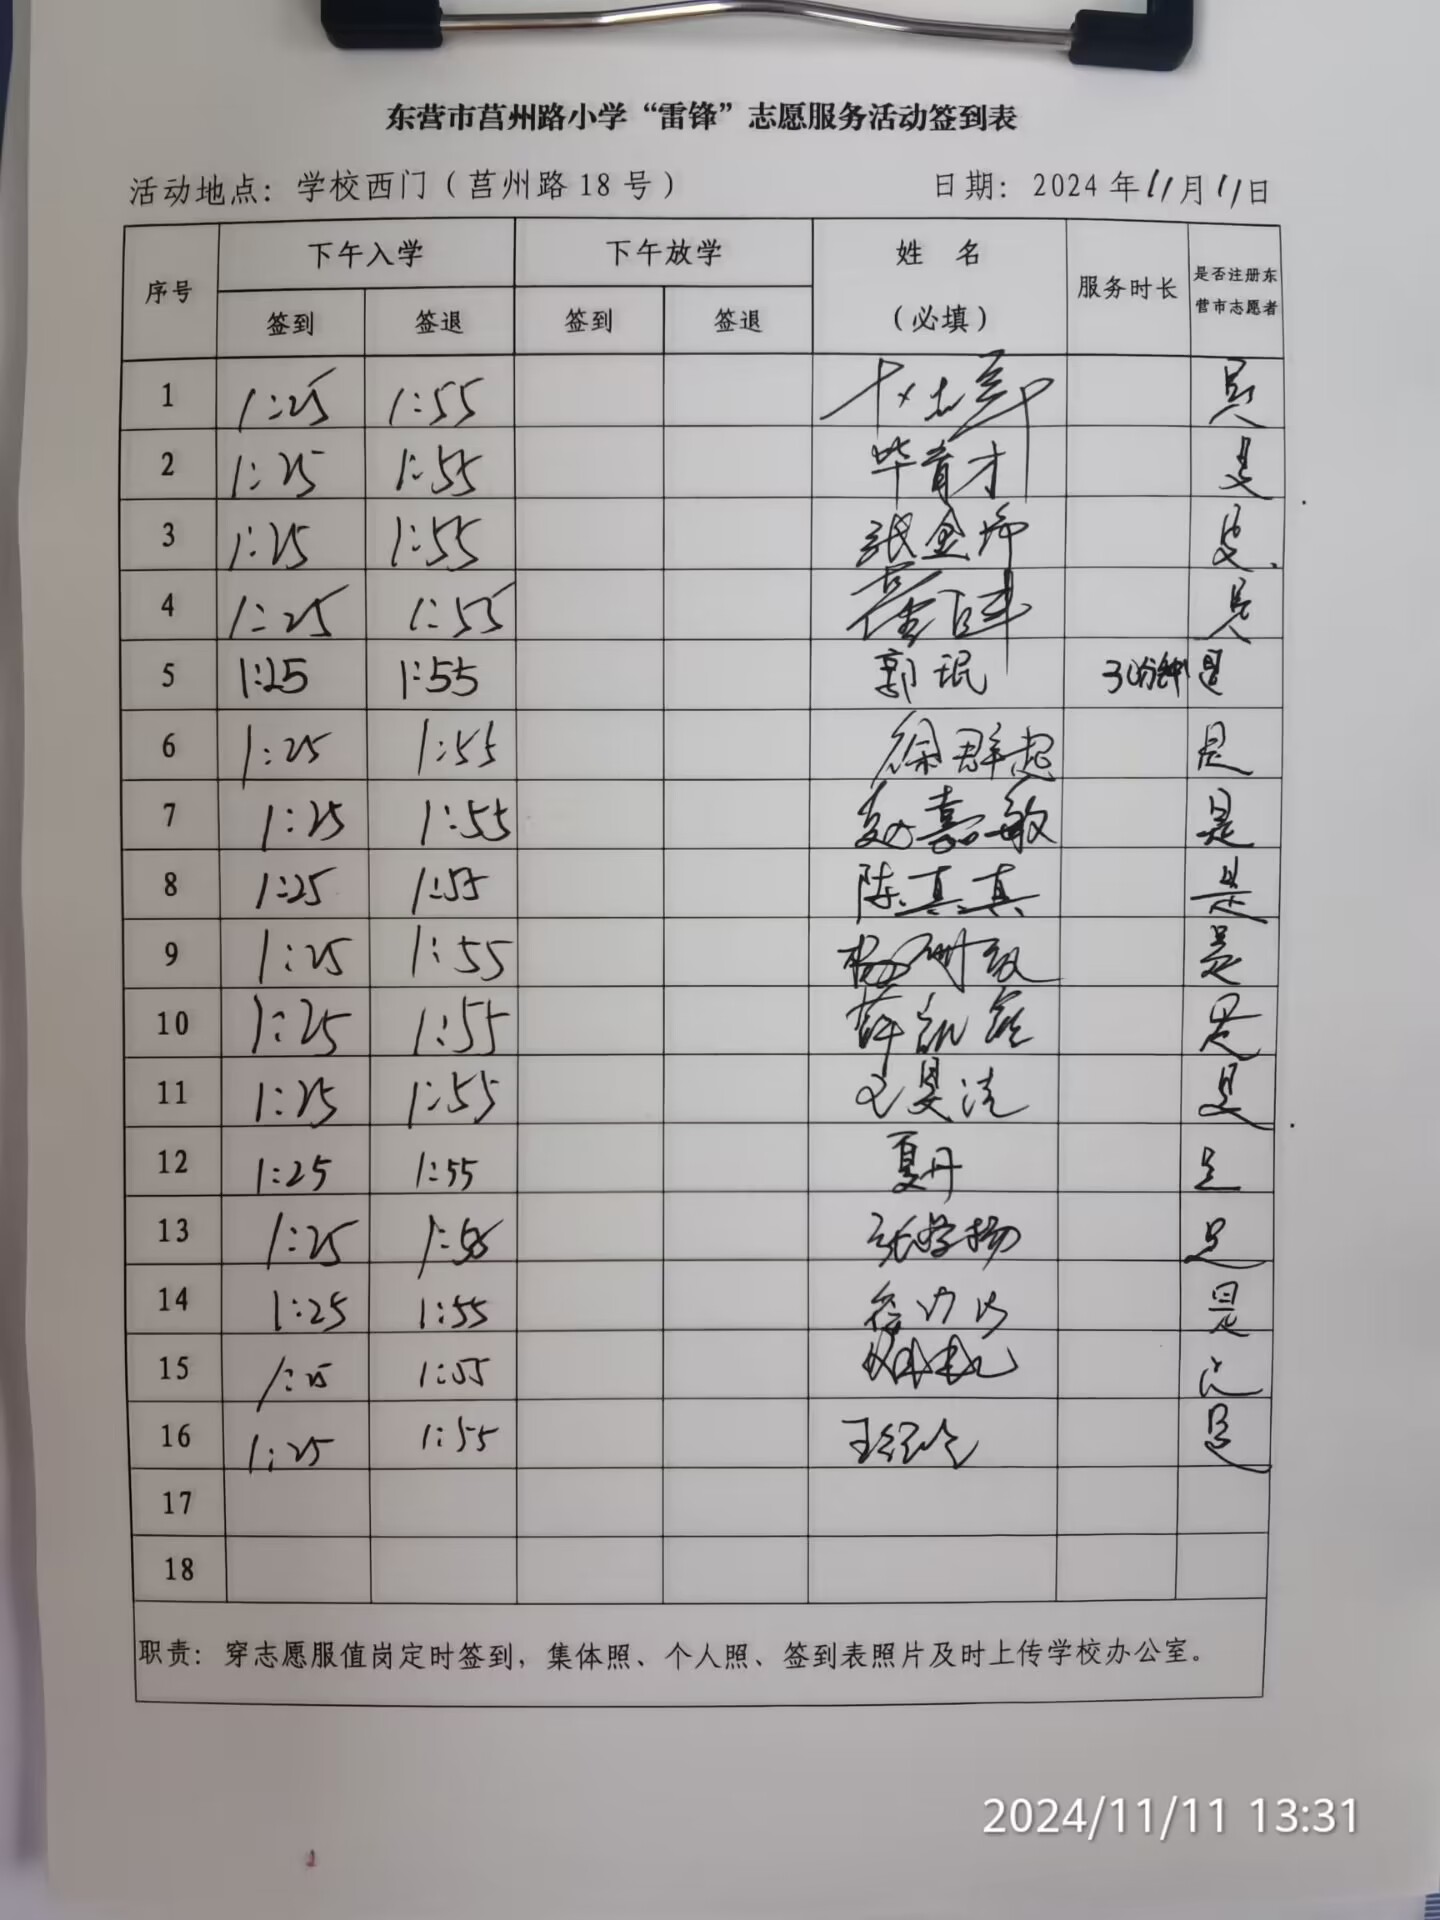 东营市莒州路小学“雷锋”志愿服务活动签到表
活动地点：学校西门（莒州路18号） 日期：2024年11月11日
序号 下午入学 下午放学 姓 名 服务时长 是否注册东
签到 签退 签到 签退 （必填） 营市志愿者
1 1:25 1:55 是
2 1:25 1:55 毕育才 是
3 1:25 1:55 张金 是
4 1:25 1:55 是
5 1:25 1:55 郭珉 30分钟 是
6 1:25 1:55 徐群超 是
7 1:25 1:55 赵嘉敏 是
8 1:25 1:55 陈真真 是
9 1:25 1:55 杨 是
10 1:25 1:55 薛凯 是
11 1:25 1:55 是
12 1:25 1:55 夏丹 是
13 1:25 1:55 张学扬 是
14 1:25 1:55 徐 是
15 1:25 1:55 是
16 1:25 1:55 王 是
17
18
职责：穿志愿服值岗定时签到，集体照、个人照、签到表照片及时上传学校办公室。
2024/11/11 13:31